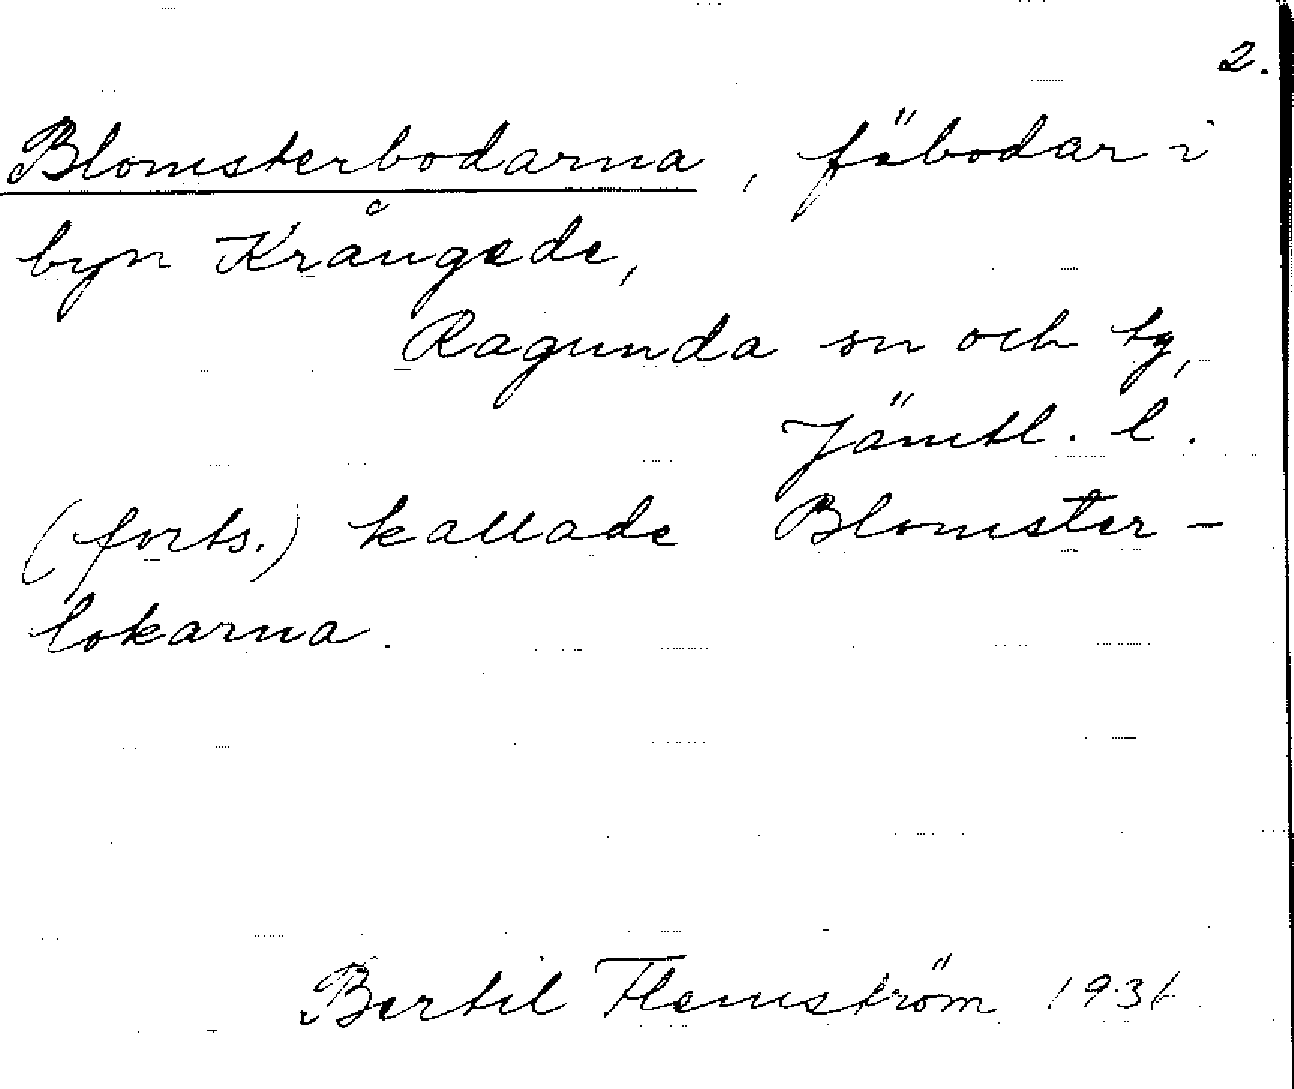 2.
Blomsterbodarna, fäbodar i
byn Krångede,
Ragunda sn och tg,
Jämtl. l.
(forts.) kallade Blomster-
lokarna.
Bertil Flemström 1931